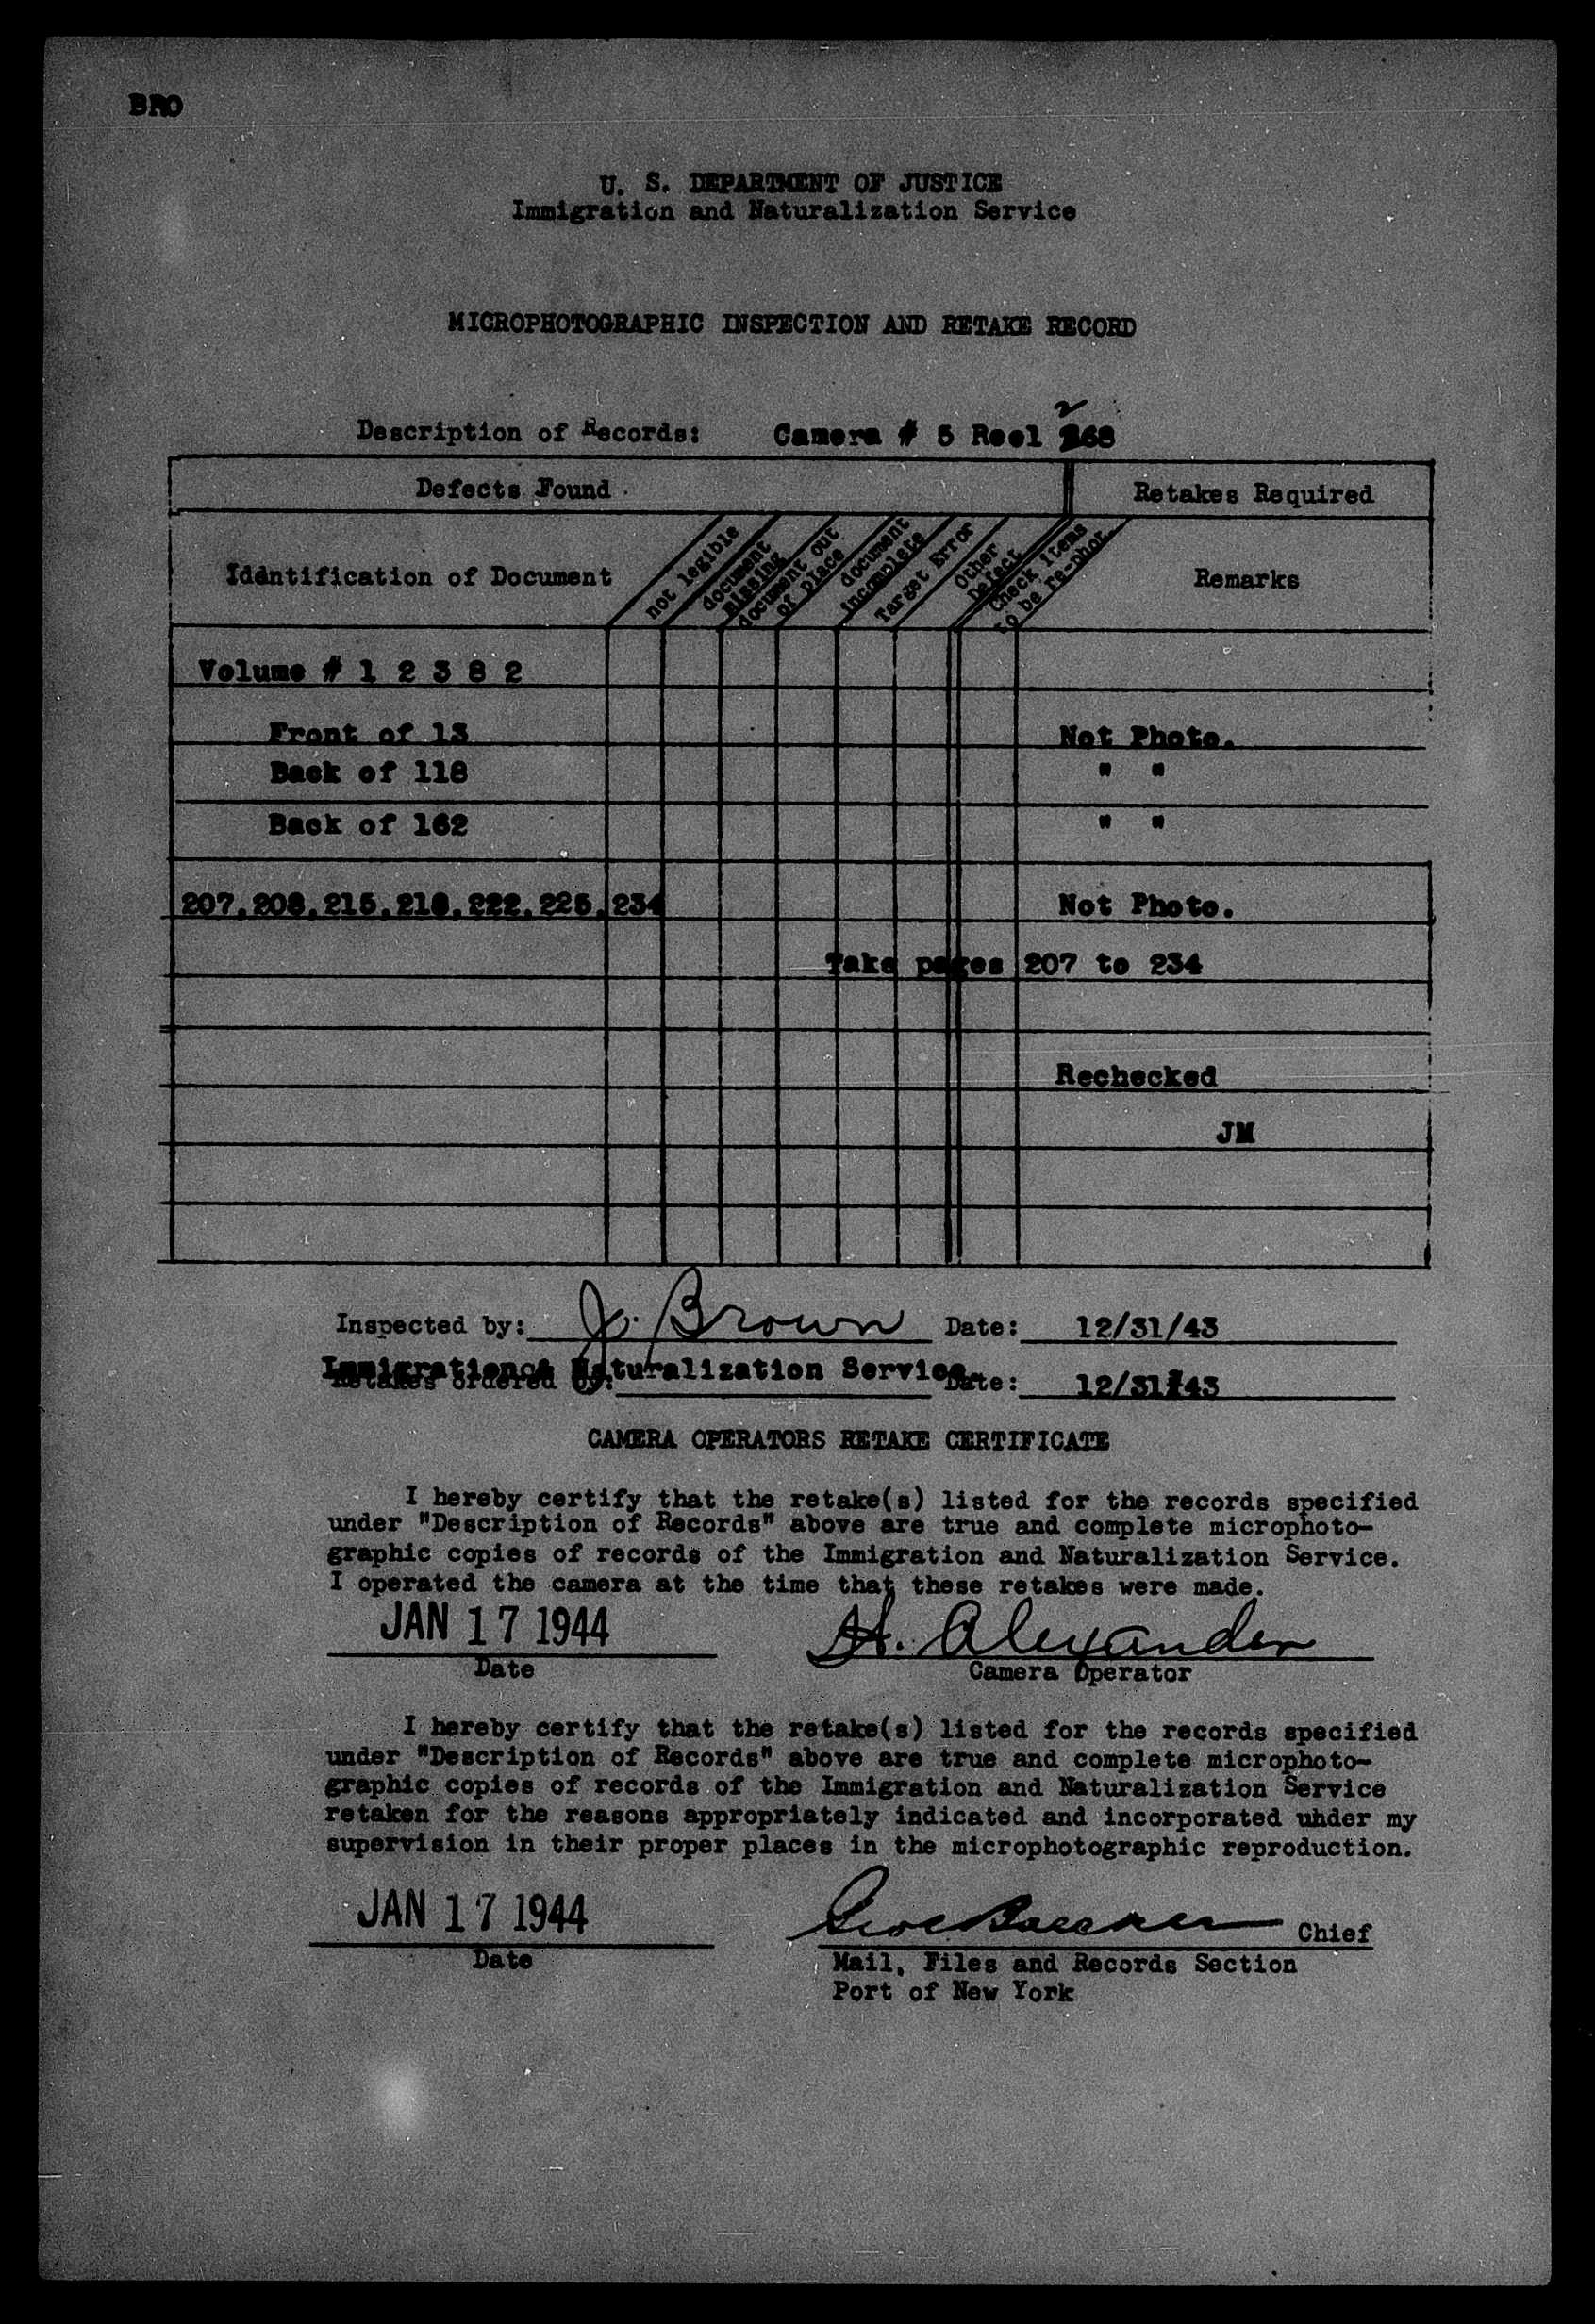 BRO
U. S. DEPARTMENT OF JUSTICE
Immigration and Naturalization Service
MICROPHOTOGRAPHIC INSPECTION AND RETAKE RECORD
2
Description of Records: Camera # 5 Reel 268
Defects Found Retakes Required
Identification of Document
not legible
document missing
document out of place
document incomplete
Target Error
Other Defect
Check items to be re-phot.
Remarks
Volume # 1 2 3 8 2
Front of 13 Not Photo.
Back of 118 " "
Back of 162 " "
207,208,215,218,222,225,234 Not Photo.
Take pages 207 to 234
Rechecked
JM
Inspected by: J. Brown Date: 12/31/43
Immigration & Naturalization Service.
Retakes ordered by: Date: 12/31/43
CAMERA OPERATORS RETAKE CERTIFICATE
I hereby certify that the retake(s) listed for the records specified
under "Description of Records" above are true and complete microphoto-
graphic copies of records of the Immigration and Naturalization Service.
I operated the camera at the time that these retakes were made.
JAN 17 1944 H. Alexander
Date Camera Operator
I hereby certify that the retake(s) listed for the records specified
under "Description of Records" above are true and complete microphoto-
graphic copies of records of the Immigration and Naturalization Service
retaken for the reasons appropriately indicated and incorporated uhder my
supervision in their proper places in the microphotographic reproduction.
JAN 17 1944 Chief
Date Mail, Files and Records Section
Port of New York